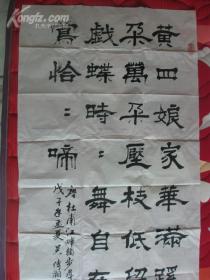 黄四娘家華滿蹊
朵萬朵壓枝低留
戲蝶時:舞自在
鶯恰:啼
唐杜甫江畔獨步尋
戊子年孟夏吴
Kongfz.com